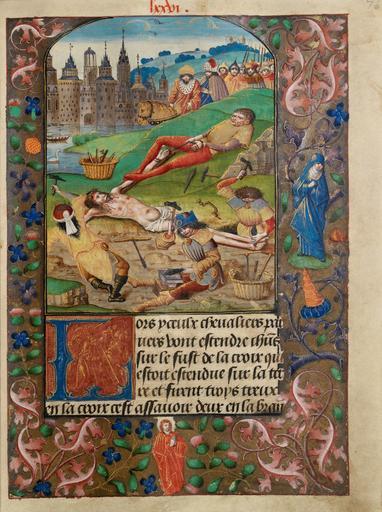 lxxvi.
Lors yceulx chevaliers pai
iiers vont estendre thus
sur le fust de la croix qui
estoit estendue sur la ter
re et furent troys treux
en la croix cest assavoir deux en la bran